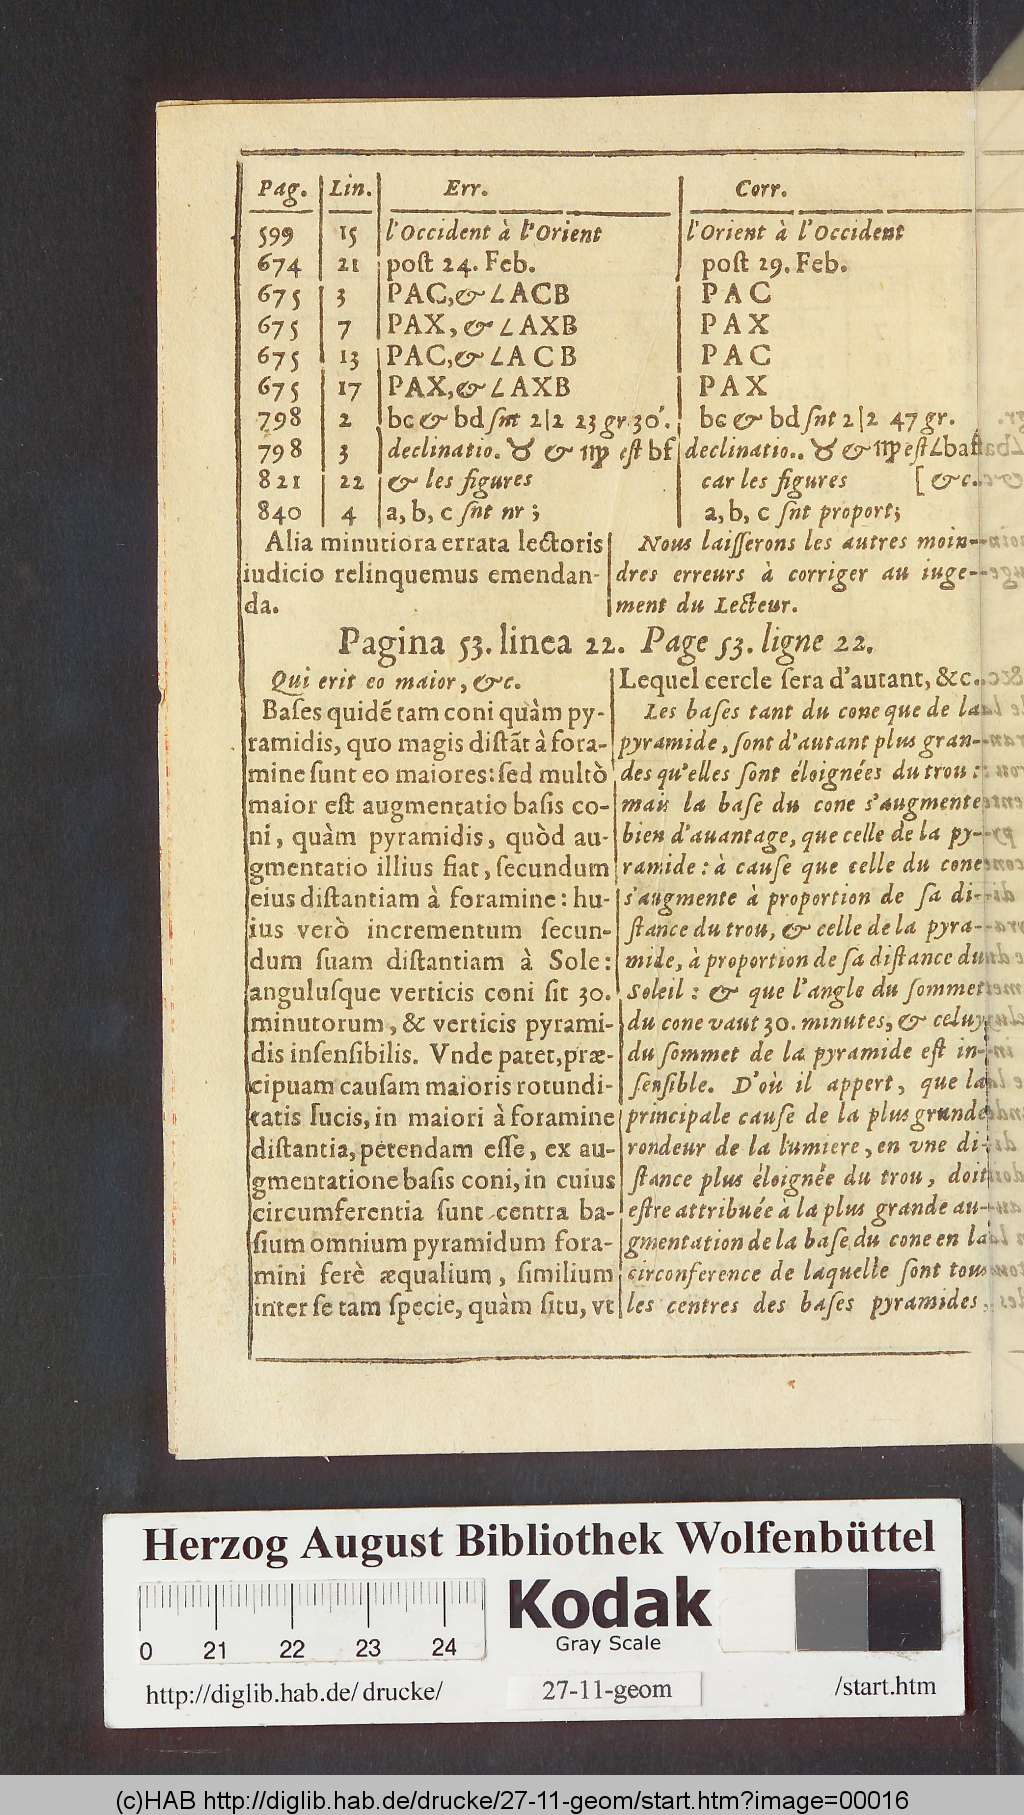 Pag. Lin. Err. Corr.
599 15 l'Occident à l'Orient l'Orient à l'Occident
674 21 poſt 24. Feb. poſt 29. Feb.
675 3 PAC, & ∠ ACB PAC
675 7 PAX, & ∠ AXB PAX
675 13 PAC, & ∠ ACB PAC
675 17 PAX, & ∠ AXB PAX
798 2 bc & bd ſnt 2|2 23 gr. 30'. bc & bd ſnt 2|2 47 gr.
798 3 declinatio. ♉ & ♍ eſt bf declinatio.. ♉ & ♍ eſt ∠baf
821 22 & les figures car les figures [&c.
840 4 a, b, c ſnt nr ; a, b, c ſnt proport;
Alia minutiora errata lectoris
iudicio relinquemus emendan-
da.
Nous laiſſerons les autres moin-
dres erreurs à corriger au iuge-
ment du Lecteur.
Pagina 53. linea 22. Page 53. ligne 22.
Qui erit eo maior, &c.
Baſes quidẽ tam coni quàm py-
ramidis, quo magis diſtãt à fora-
mine ſunt eo maiores: ſed multò
maior eſt augmentatio baſis co-
ni, quàm pyramidis, quòd au-
gmentatio illius fiat, ſecundum
eius diſtantiam à foramine: hu-
ius verò incrementum ſecun-
dum ſuam diſtantiam à Sole:
anguluſque verticis coni ſit 30.
minutorum, & verticis pyrami-
dis inſenſibilis. Vnde patet, præ-
cipuam cauſam maioris rotundi-
tatis lucis, in maiori à foramine
diſtantia, petendam eſſe, ex au-
gmentatione baſis coni, in cuius
circumferentia ſunt centra ba-
ſium omnium pyramidum fora-
mini ferè æqualium, ſimilium
inter ſe tam ſpecie, quàm ſitu, vt
Lequel cercle ſera d'autant, &c.
Les baſes tant du cone que de la
pyramide, ſont d'autant plus gran-
des qu'elles ſont éloignées du trou:
mais la baſe du cone s'augmente
bien d'auantage, que celle de la py-
ramide: à cauſe que celle du cone
s'augmente à proportion de ſa di-
ſtance du trou, & celle de la pyra-
mide, à proportion de ſa diſtance du
Soleil: & que l'angle du ſommet
du cone vaut 30. minutes, & celuy
du ſommet de la pyramide eſt in-
ſenſible. D'où il appert, que la
principale cauſe de la plus grande
rondeur de la lumiere, en vne di-
ſtance plus éloignée du trou, doit
eſtre attribuée à la plus grande au-
gmentation de la baſe du cone en la
circonference de laquelle ſont tous
les centres des baſes pyramides,
Herzog August Bibliothek Wolfenbüttel
0 21 22 23 24
Kodak
Gray Scale
http://diglib.hab.de/drucke/ 27-11-geom /start.htm
(c)HAB http://diglib.hab.de/drucke/27-11-geom/start.htm?image=00016